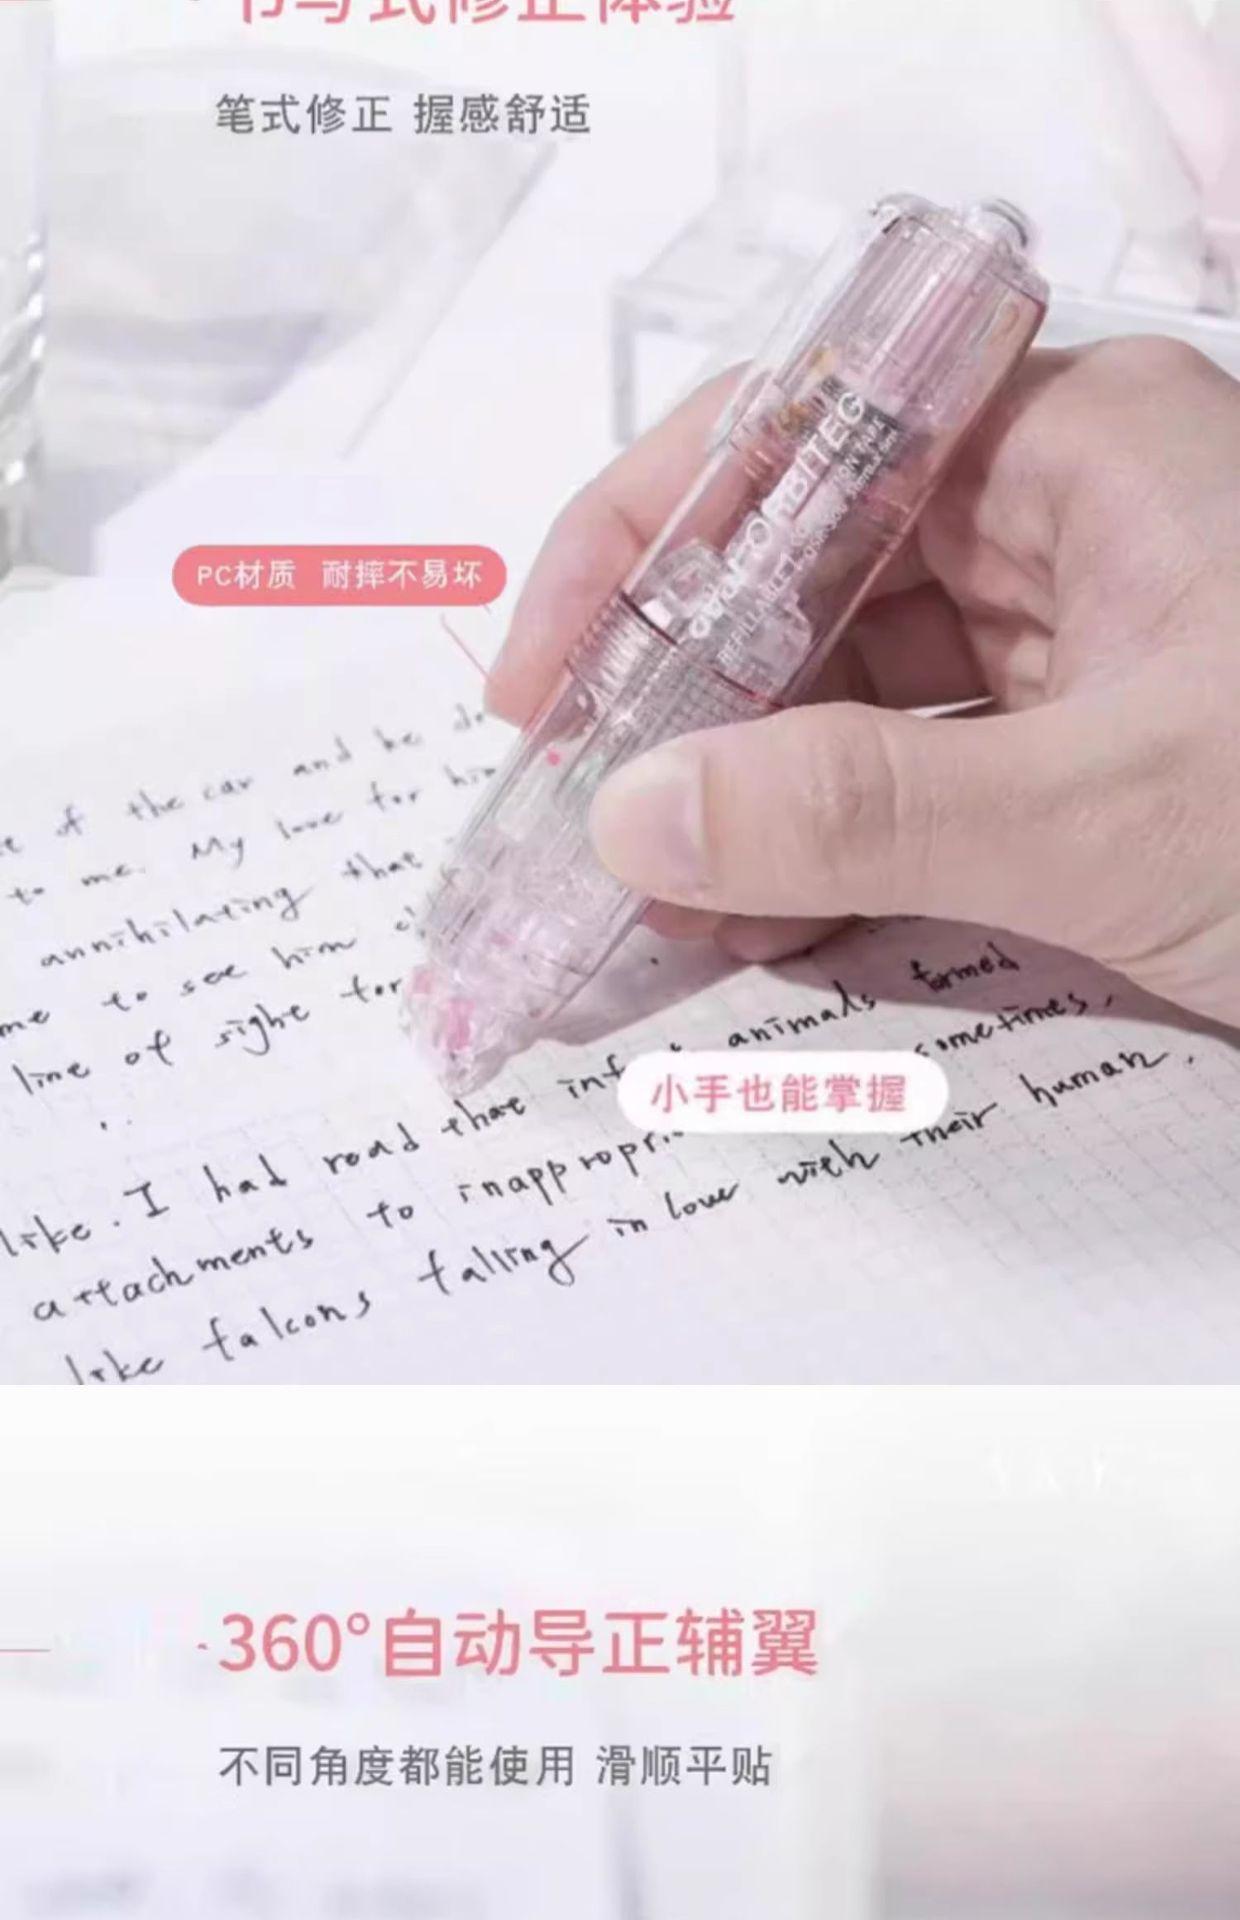 书写式修正体验
笔式修正 握感舒适
PC材质 耐摔不易坏
REFILLABLE
of the car and he
to me. My love for him
annihilating that
me to see him
line of sight for
小手也能掌握
like. I had read that animals formed
attachments to sometimes,
like falcons falling in love with their human.
360°自动导正辅翼
不同角度都能使用 滑顺平贴